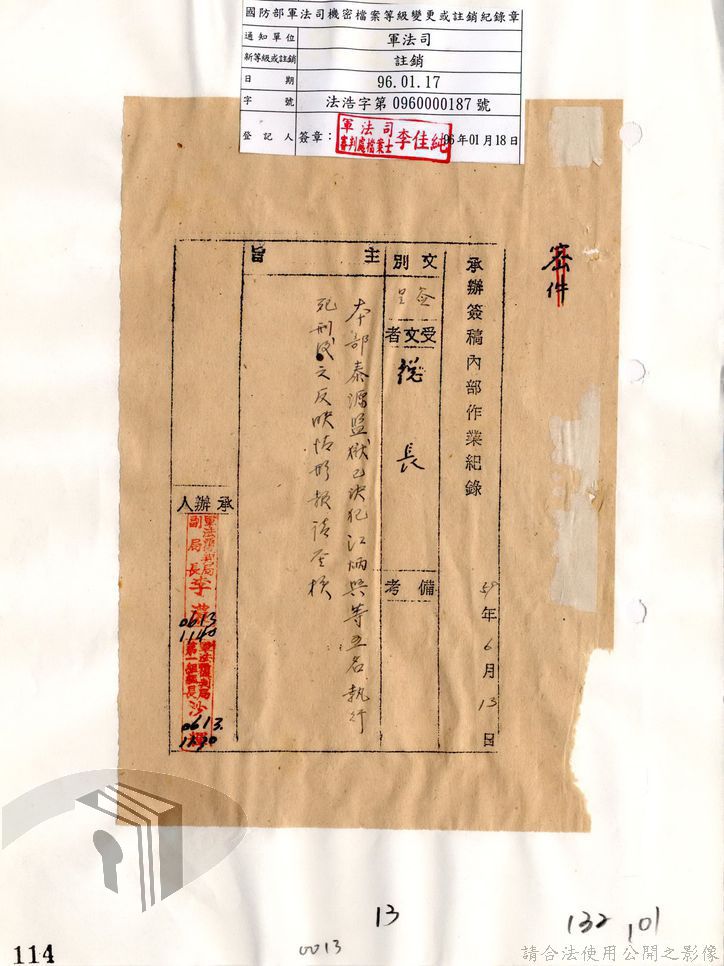 國防部軍法司機密檔案等級變更或註銷紀錄章
通知單位 軍法司
新等級或註銷 註銷
日期 96.01.17
字號 法浩字第0960000187號
登記人 簽章： 軍法司 審判處檔案士 李佳純 96年01月18日
密件
承辦簽稿內部作業紀錄 59年6月13日
文別 簽呈
受文者 總長
備考
主旨
本部泰源監獄已決犯江炳興等五名執行
死刑後之反映情形報請鑒核
承辦人
軍法覆判局
副局長李
0613
1140
軍法覆判局
第一組組長沙
0613.
13
132
101
0013
114
請合法使用公開之影像